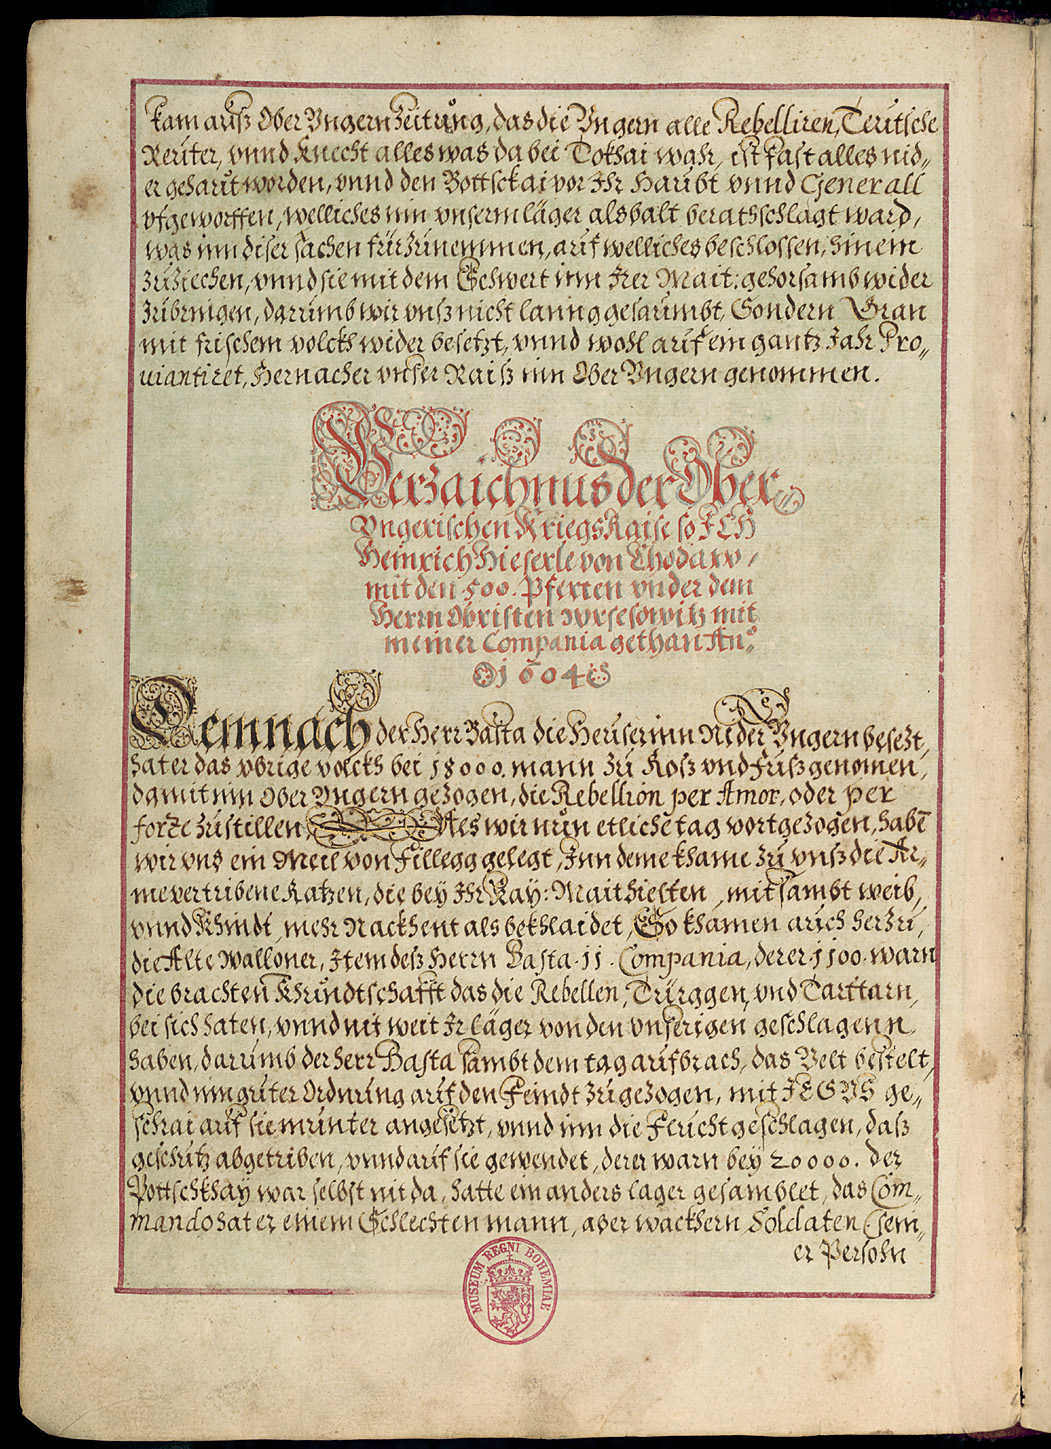 kam auß Ober Vngern Zeitŭng, das die Vngern alle Rebelliren, Teütsche
Reüter, vnnd Knecht alles was da bei Tokhai wahr, ist fast alles nid„
er gehaut worden, vnnd den Bottsckai vor Ihr Haubt vnnd Generall
vfgeworffen, welliches inn vnserm läger alsbalt berathschlagt ward,
was inn diser sachen fürzŭnemmen, auf welliches beschlossen, hinein
zŭziechen, vnnd sie mit dem Schwert inn Irer Mait: gehorsamb wider
zŭbringen, darumb wir vnß nicht lanng gesaumbt, Sondern Gran
mit frischem volckh wider besetzt, vnnd wohl auf ein gantz Jahr Pro„
uiantiret, Hernacher vnser Raiß inn Ober Vngern genommen.
Verzaichnus der Ober
Vngerischen Kriegs Raise so ICH
Heinrich Hieserle von Chodaw /
mit den 500. Pferten vnder dem
Herrn Obristen Wrsesowitz mit
meiner Compania gethan Anº
1604
Demnach der Herr Basta die Heüser inn Nider Vngern besezt,
hat er das vbrige volckh bei 18000. mann zŭ Roß vnd Fŭß genomen,
damit inn Ober Vngern gezogen, die Rebellion per Amor, oder per
forze zŭstillen, Als wir nŭn etliche tag vortgezogen, habē
wir vns ein Meil von Fillegg gelegt, Inn deme khame zŭ vnß die Ar„
me vertribene Ratzen, die bey Ihr Kay: Mait hielten, mit sambt weib,
vnnd Khindt, mehr Nackhent als bekhlaidet, So khamen aŭch herzŭ,
die Alte Walloner, Item deß Herrn Basta 11. Compania, derer 1100. warn
die brachten Khŭndtschafft das die Rebellen, Türggen, vnd Tarttarn,
bei sich haten, vnnd nit weit Ir läger von den vnserigen geschlagenn
haben, darŭmb der Herr Basta sambt dem tag aŭfbrach, das Velt bestelt,
vnnd inn gŭter Ordnŭng aŭf den Feindt zŭgezogen, mit IESVS ge„
schrai aŭf sie mŭnter angesetzt, vnnd inn die Flŭcht geschlagen, daß
geschütz abgetriben, vnnd aŭf sie gewendet, derer warn bey 20000. der
Pottschkhay war selbst nit da, hatte ein anders lager gesamblet, das Com„
mando hat er einem Schlechten mann, aber wackhern Soldaten (sein„
er Persohn
MUSEUM REGNI BOHEMIAE